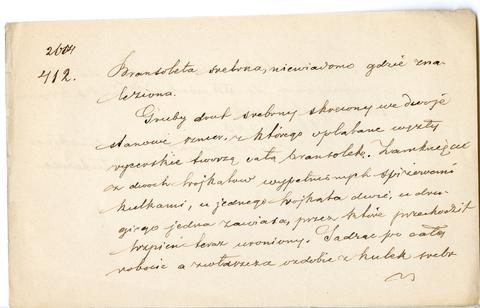 2604
412. Bransoleta srebrna, niewiadomo gdzie zna-
leziona.
Gruby drut srebrny skręcony we dwoje
stanowi sznur, z którego uplatane węzły
rycerskie tworzą całą bransoletę. Zamknięcie
z dwóch trójkątów wypełnionych spiżowemi
kulkami, u jednego trójkąta dwie, u dru-
giego jedna zawiasa, przez które przechodził
trzpień teraz uroniony. Sądząc po całej
robocie a zwłaszcza ozdobie z kulek srebr